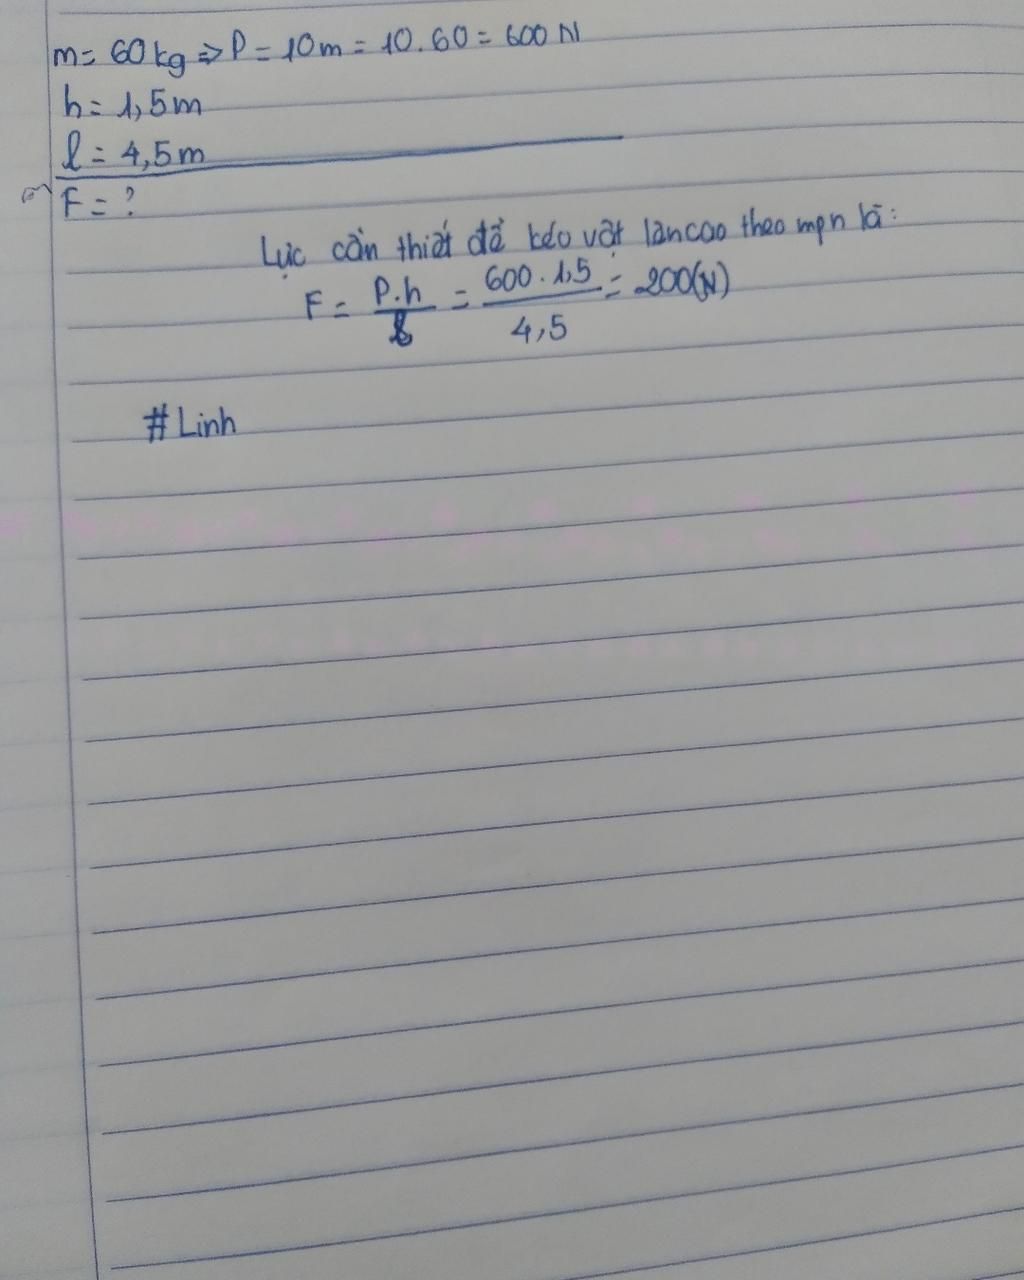 m = 60 kg => P = 10m = 10.60 = 600 N
h = 1,5m
l = 4,5m
F = ?
Lực cần thiết để kéo vật lên cao theo mpn là:
F = P.h / l = 600 . 1,5 / 4,5 = 200(N)
# Linh